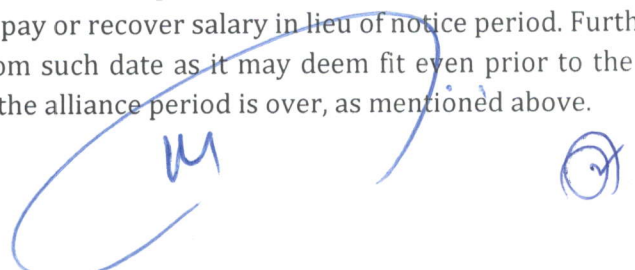 pay or recover salary in lieu of notice period. Furth
om such date as it may deem fit even prior to the
the alliance period is over, as mentioned above.